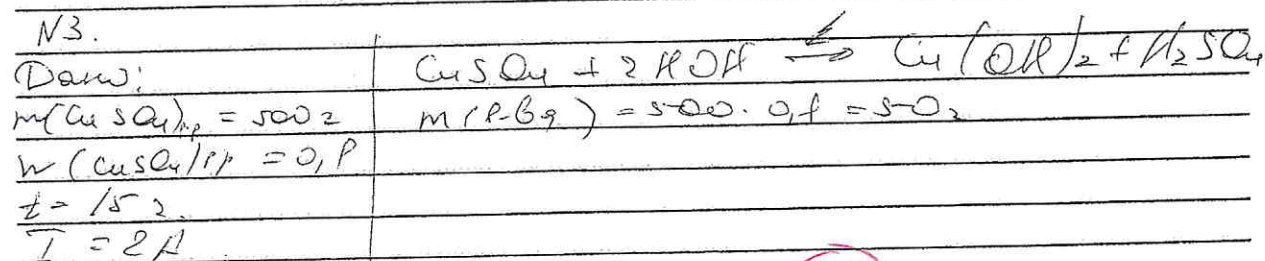 N3.
Дано:
m(CuSO4)р-р = 500 г
w(CuSO4)р-р = 0,1
t = 15 г.
I = 2 A
CuSO4 + 2 HOH ⇌ Cu(OH)2 + H2SO4
m(р-ва) = 500 · 0,1 = 50 г